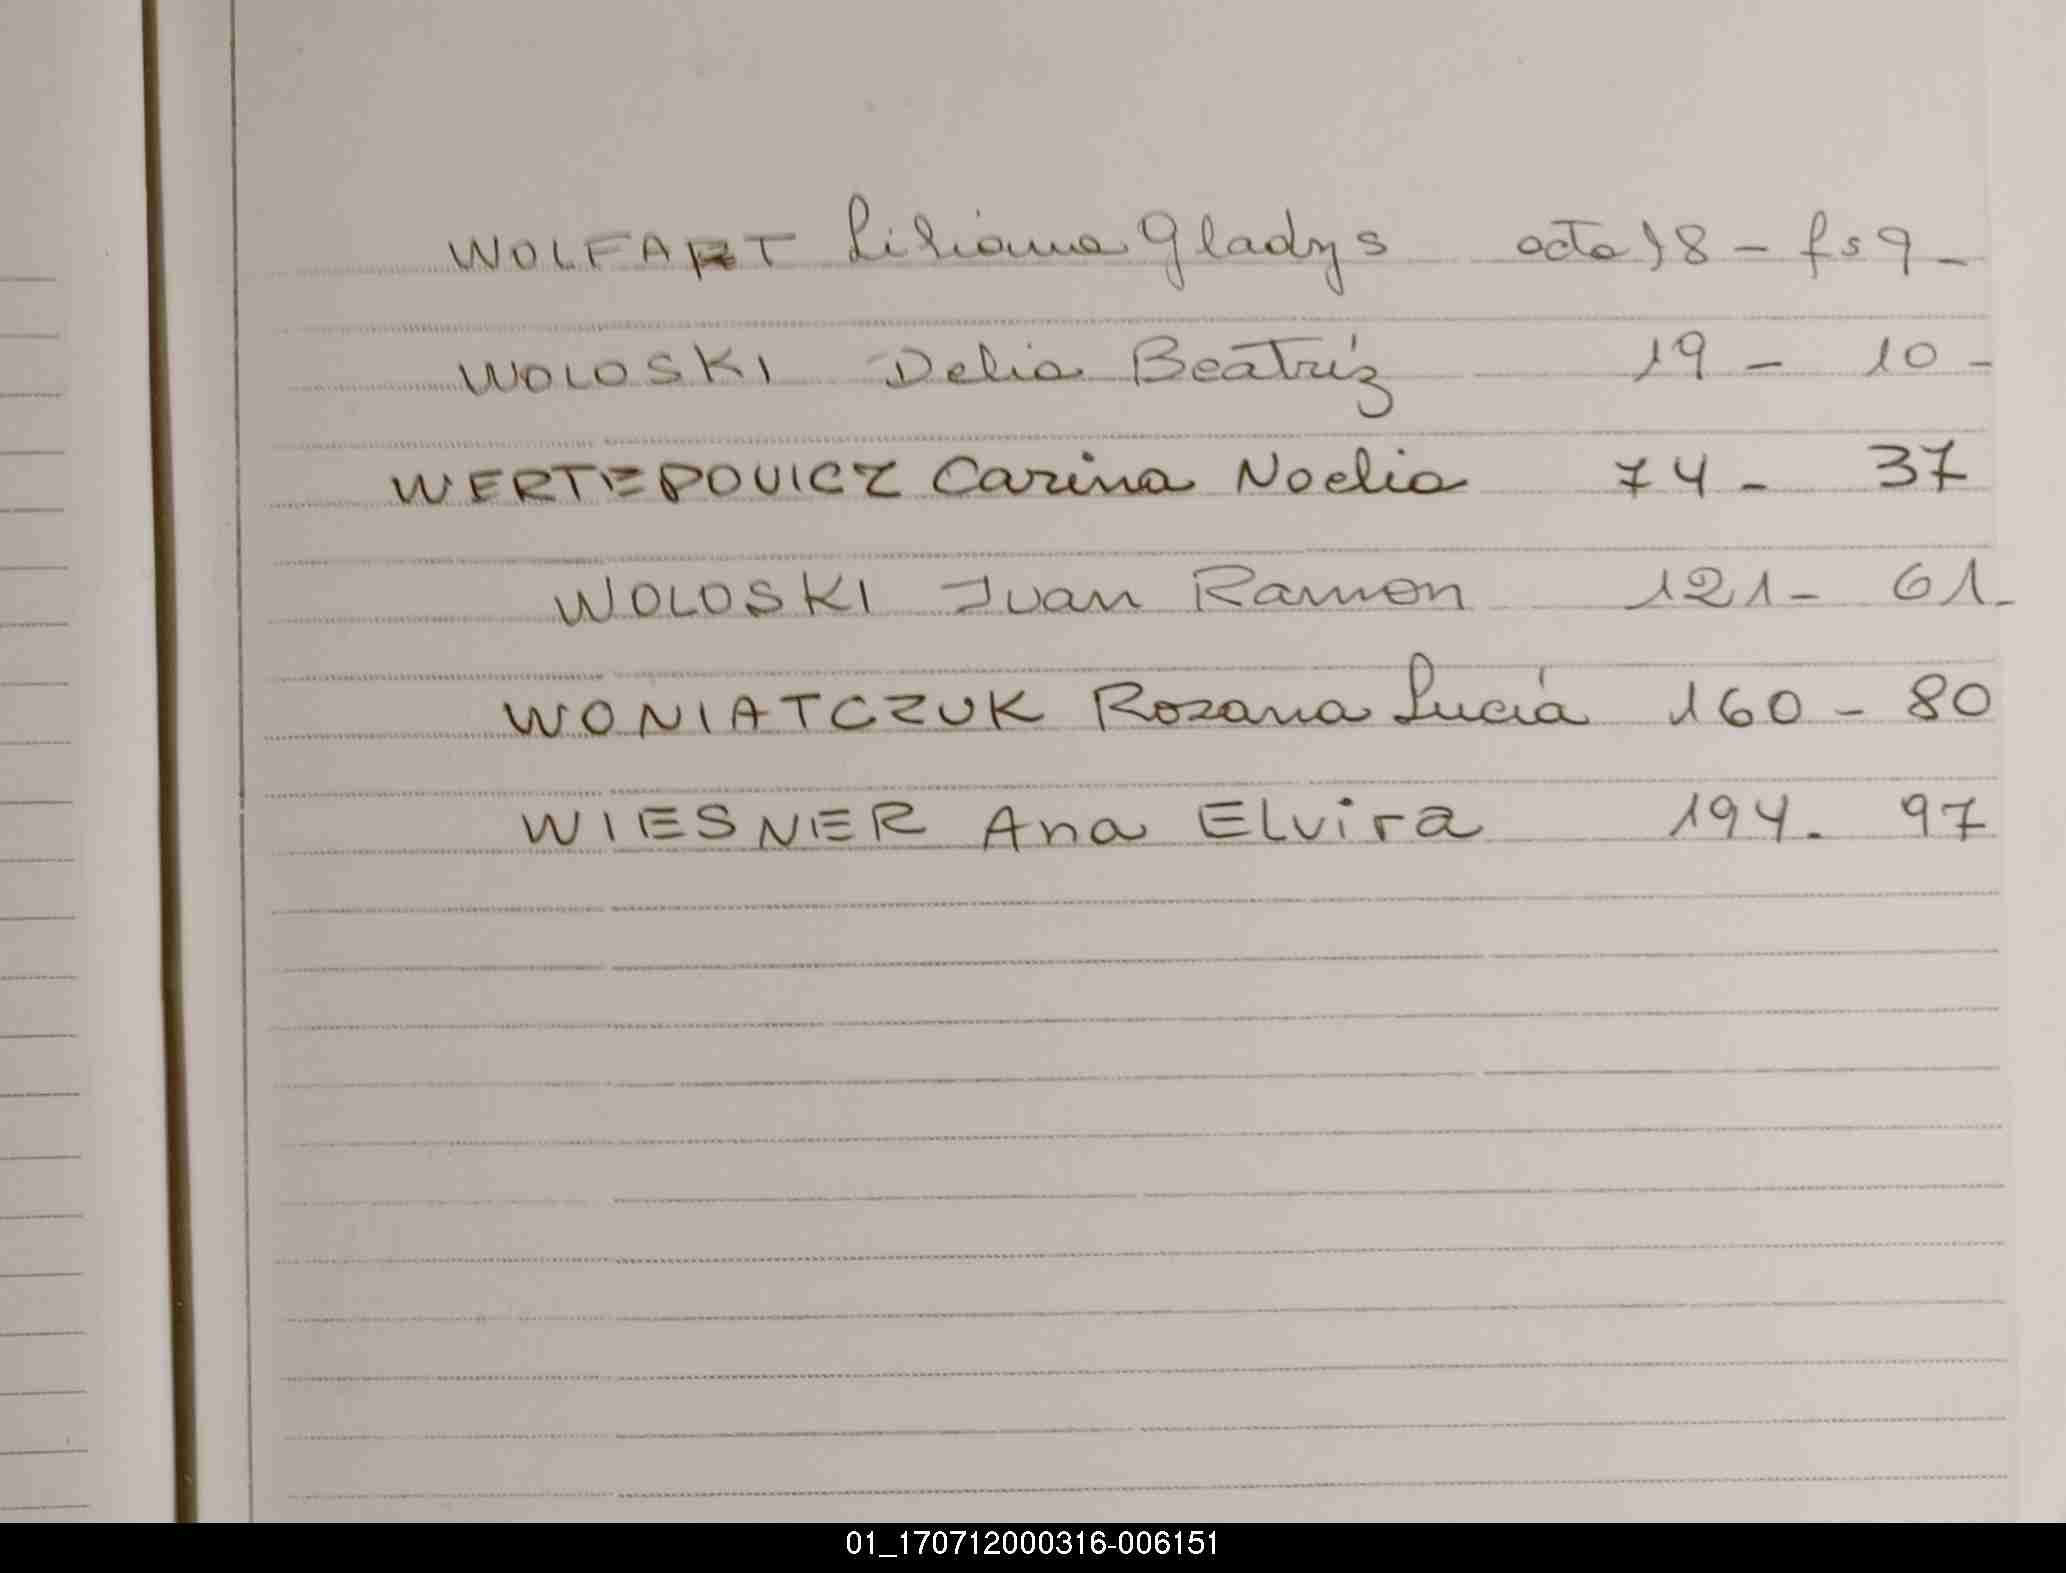 WOLFART Liliana Gladys acta 18 - fs 9 -
WOLOSKI Delia Beatriz 19 - 10 -
WERTEPOVICZ Carina Noelia 74 - 37
WOLOSKI Juan Ramon 121 - 61 -
WONIATCZUK Rozana Lucia 160 - 80
WIESNER Ana Elvira 194 . 97
01_170712000316-006151